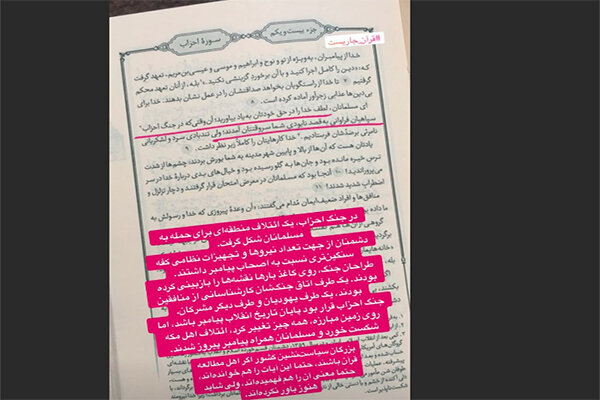 جزء بیست و یکم
سورهٔ احزاب
#قران_جاریست
خدا از پیامبران، به‌ویژه از تو و نوح و ابراهیم و موسی و عیسی‌بن‌مریم، تعهد گرفت
که: «دین را کامل اجرا کنید و با آن برخورد گزینشی نکنید.» بله، از آنان تعهد محکم
گرفتیم ۷ تا خدا از راستگویان بخواهد صداقتشان را در عمل نشان بدهند. خدا برای
بی‌دین‌ها عذابی زجرآور آماده کرده است. ۸
ای مسلمانان، لطف خدا را در حق خودتان به‌یاد بیاورید؛ آن‌وقتی که در جنگ احزاب
سپاهیان فراوانی به‌قصد نابودی شما سروقتتان آمدند؛ ولی تندبادی سرد و لشکریانی
نامرئی برضدشان فرستادیم. خدا کارهایتان را کاملاً زیر نظر داشت. ۹
یادتان هست که آن‌ها از بالا و پایین شهر مدینه به شما یورش بردند؛ چشم‌ها از شدت
ترس خیره مانده بود و جان‌ها به گلو رسیده بود و خیال‌های بدی دربارهٔ خدا در سر
می‌پروراندید! ۱۰ آنجا بود که مسلمانان در معرض امتحان قرار گرفتند و دچار تزلزل و
اضطراب شدید شدند! ۱۱
منافق‌ها و افراد ضعیف‌ایمان مُدام می‌گفتند: «آن وعدهٔ پیروزی که خدا و رسولش به
ما داده
در جنگ احزاب، یک ائتلاف منطقه‌ای برای حمله به
مسلمانان شکل گرفت.
دشمنان از جهت تعداد نیروها و تجهیزات نظامی کفه
سنگین‌تری نسبت به اصحاب پیامبر داشتند.
طراحان جنگ، روی کاغذ بارها نقشه‌ها را بازبینی کرده
بودند. یک طرف اتاق جنگشان کارشناسانی از منافقین
بودند، یک طرف یهودیان و طرف دیگر مشرکان.
جنگ احزاب قرار بود پایان تاریخ انقلاب پیامبر باشد، اما
روی زمین مبارزه، همه چیز تغییر کرد، ائتلاف اهل مکه
شکست خورد و مسلمانان همراه پیامبر پیروز شدند.
بزرگان سیاست‌نشین کشور اگر اهل مطالعه
قرآن باشند، حتما این آیات را هم خوانده‌اند،
حتما معنی آن را هم فهمیده‌اند، ولی شاید
هنوز باور نکرده‌اند.